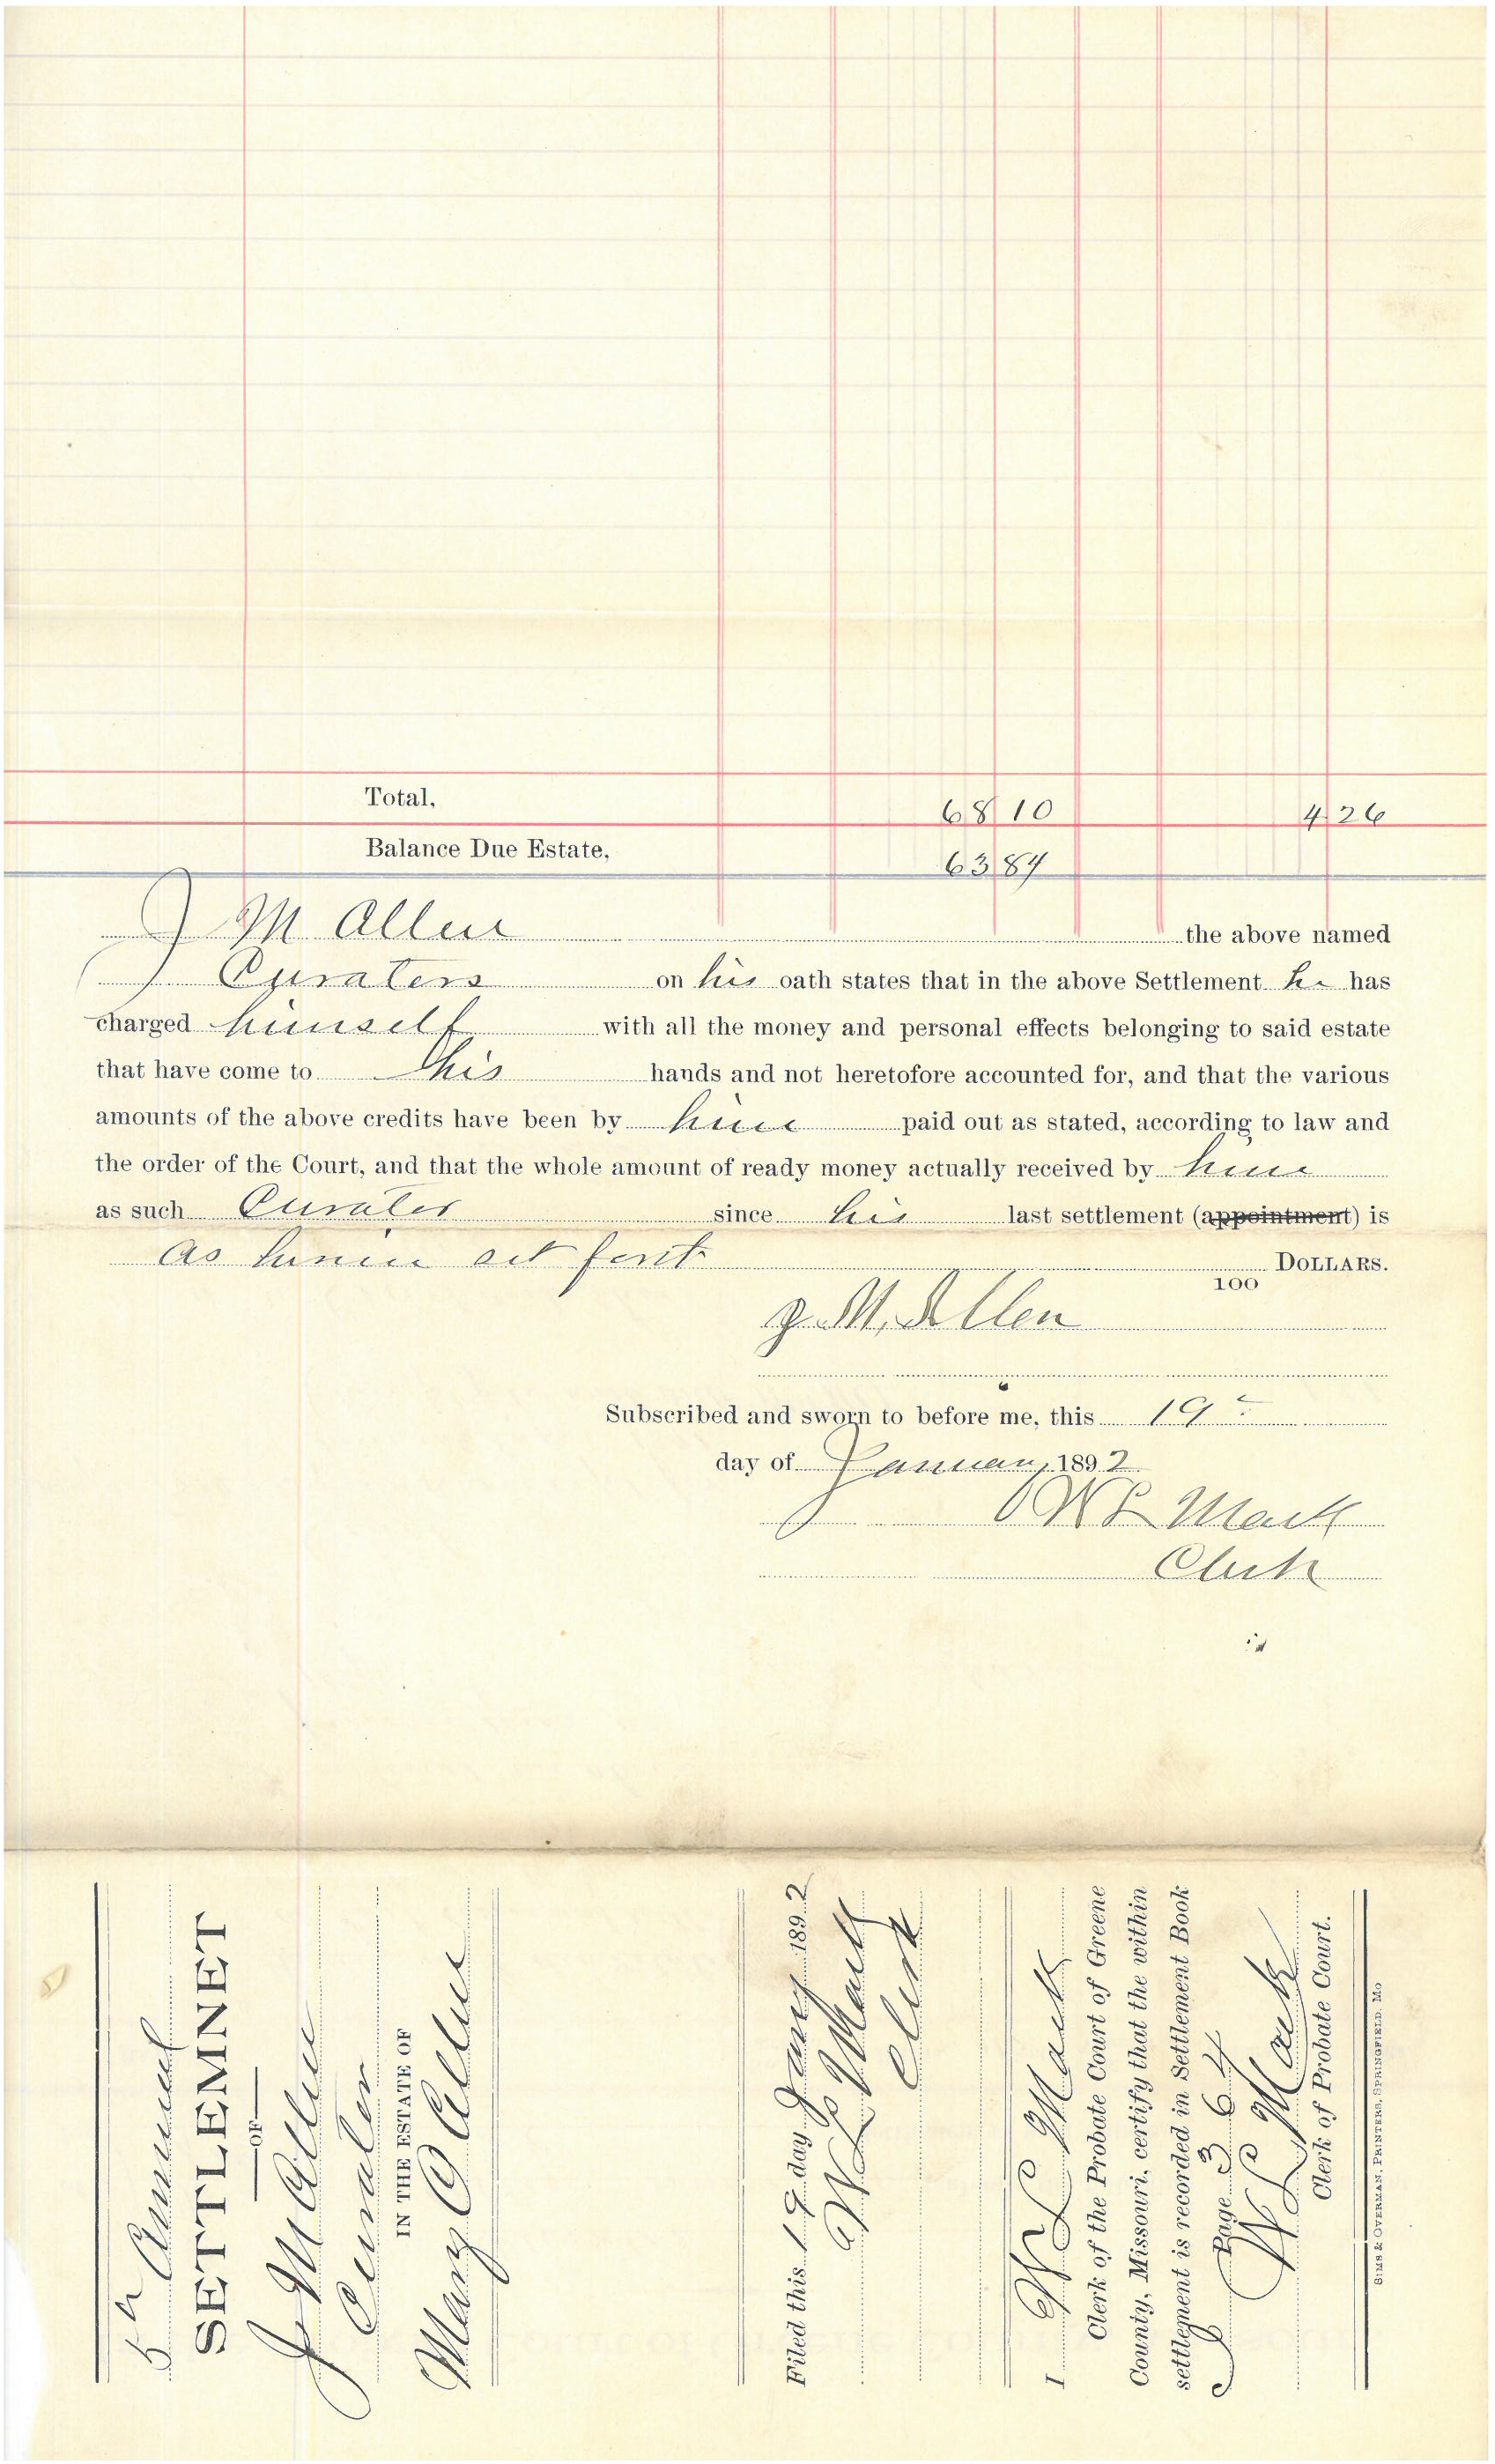 Total, 68 10 4 26
Balance Due Estate, 63 84
J M Allen the above named
Curators on his oath states that in the above Settlement he has
charged himself with all the money and personal effects belonging to said estate
that have come to his hands and not heretofore accounted for, and that the various
amounts of the above credits have been by him paid out as stated, according to law and
the order of the Court, and that the whole amount of ready money actually received by him
as such Curator since his last settlement (appointment) is
as herein set forth DOLLARS.
100
J. M. Allen
Subscribed and sworn to before me, this 19
day of January, 1892
W L Mack
Clerk
5th Annual
SETTLEMNET
OF
J M Allen
Curator
IN THE ESTATE OF
Mary Allen
Filed this 19 day Jany 1892
W L Mack
Clerk
I W L Mack
Clerk of the Probate Court of Greene
County, Missouri, certify that the within
settlement is recorded in Settlement Book
Page 364
W L Mack
Clerk of Probate Court.
SIMS & OVERMAN, PRINTERS, SPRINGFIELD, MO